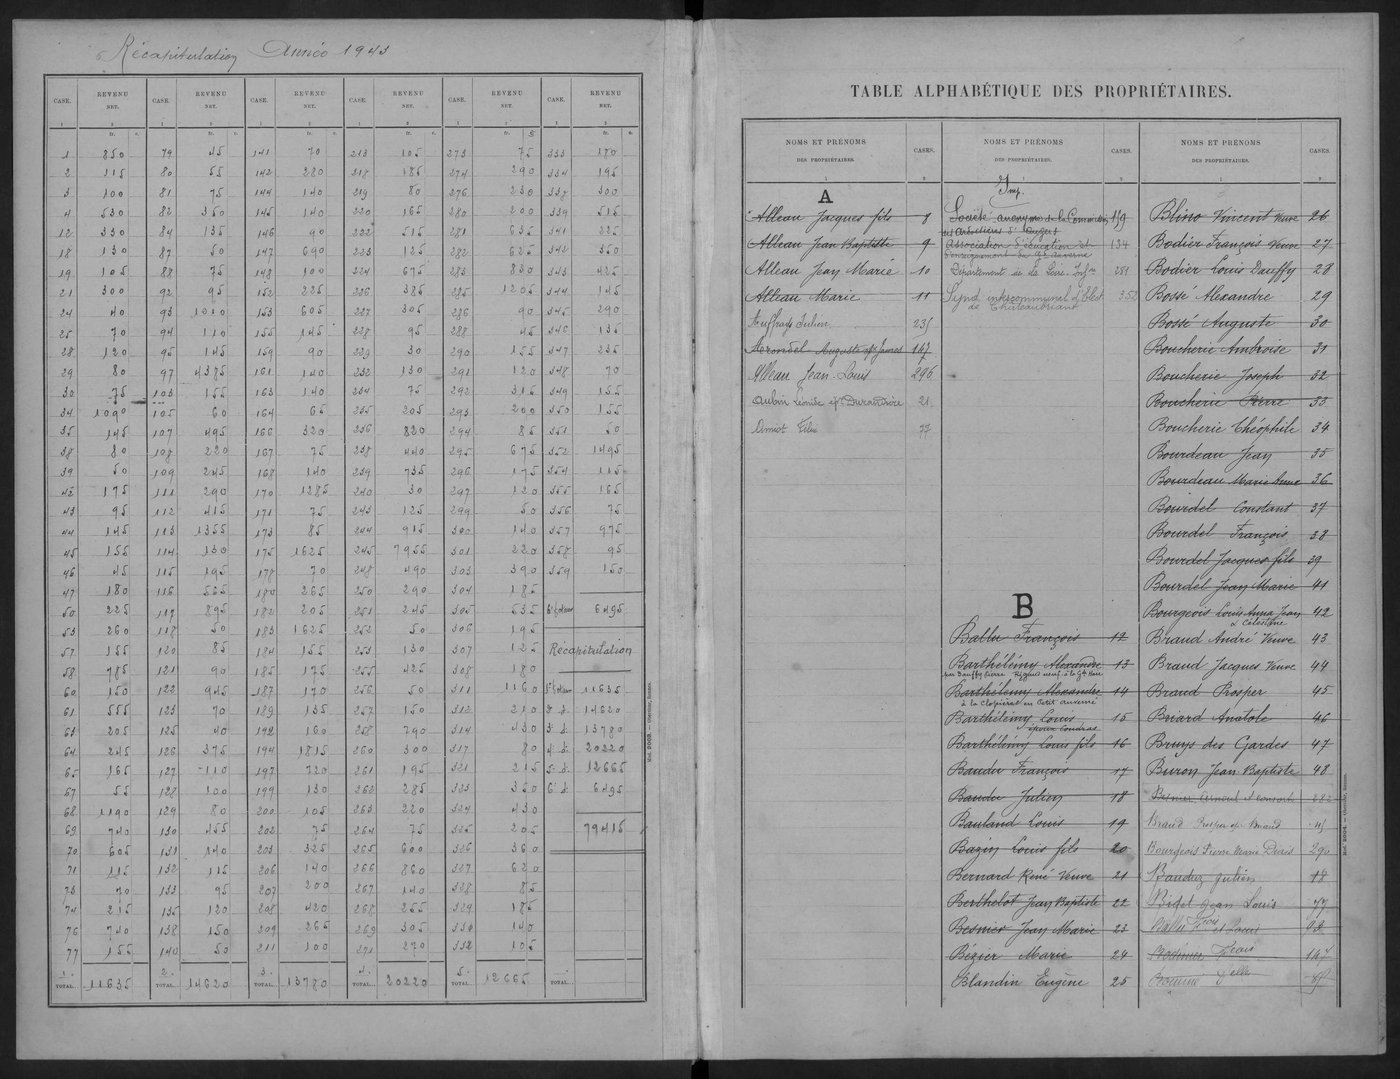 Récapitulation Année 1943
CASE. REVENU NET. CASE. REVENU NET. CASE. REVENU NET. CASE. REVENU NET. CASE. REVENU NET. CASE. REVENU NET.
1 2 1 2 1 2 1 2 1 2 1 2
fr. c. fr. c. fr. c. fr. c. fr. fr. c.
1 850 79 45 141 70 213 105 273 75 333 180
2 115 80 55 142 280 218 185 274 290 334 195
3 100 81 75 144 140 219 80 276 230 338 300
4 530 82 350 145 140 220 165 280 200 339 515
12 330 84 135 146 90 222 515 281 635 341 225
18 130 87 50 147 690 223 125 282 625 342 350
19 105 88 75 148 100 224 675 283 830 343 425
21 300 92 95 152 225 226 385 285 1205 344 145
24 40 93 1010 153 605 227 305 286 90 345 290
25 70 94 110 155 145 228 95 288 45 346 135
28 120 95 145 159 90 229 30 290 155 347 235
29 80 97 4385 161 140 232 130 291 120 348 70
30 75 103 155 163 140 234 75 292 315 349 155
34 1090 105 60 164 65 235 205 293 200 350 155
35 145 107 495 166 320 236 820 294 85 351 50
38 80 108 220 167 75 238 440 295 675 352 1495
39 50 109 245 168 140 239 735 296 175 354 115
42 175 111 290 170 1285 240 30 297 120 355 165
43 95 112 415 171 75 243 125 299 50 356 75
44 145 113 1355 173 85 244 915 300 140 357 975
45 155 114 130 175 1625 245 7955 301 220 358 95
46 45 115 195 178 70 248 490 303 390 359 150
47 180 116 565 180 265 250 290 304 185
50 225 117 895 182 205 251 245 305 535 6495
53 260 118 50 183 1625 252 50 306 195
57 155 120 85 184 155 253 130 307 125 Récapitulation
58 785 121 90 185 175 255 425 308 180
60 150 122 945 187 170 256 50 311 1160 11635
61 555 123 70 189 135 257 150 312 210 14620
63 205 125 40 192 160 258 790 314 430 13780
64 245 126 375 194 1815 260 300 317 80 20220
65 165 127 110 197 720 261 195 321 215 12665
67 55 128 100 199 130 262 285 323 350 6495
68 1190 129 80 200 105 263 220 324 430
69 740 130 455 202 75 264 75 325 205 79415
70 605 131 140 203 325 265 600 326 360
71 115 132 115 206 140 266 860 327 620
73 70 133 95 207 200 267 140 328 85
74 215 135 120 208 420 268 255 329 185
76 740 138 150 209 265 269 305 330 140
77 155 140 50 211 100 271 270 332 105
1. 2. 3. 4. 5.
TOTAL. 11635 TOTAL. 14620 TOTAL. 13780 TOTAL. 20220 TOTAL. 12665 TOTAL.
TABLE ALPHABÉTIQUE DES PROPRIÉTAIRES.
NOMS ET PRÉNOMS DES PROPRIÉTAIRES. CASES. NOMS ET PRÉNOMS DES PROPRIÉTAIRES. CASES. NOMS ET PRÉNOMS DES PROPRIÉTAIRES. CASES.
A
Alleau Jacques fils 1
Alleau Jean Baptiste 9
Alleau Jean Marie 10
Alleau Marie 11
Auffray Julien 235
Arondel Auguste ép. James 147
Alleau Jean-Louis 296
Aubin Léonide ép. Durandière 21
Amiot Félix 77
Imp.
Société anonyme de la Commission des Ardoisières d'Angers 119
Association d'éducation et d'enseignement du Pt Auverné 134
Département de la Loire-Infre 251
Synd. intercommunal d'Elect de Châteaubriant 352
B
Ballu François 12
Barthélémy Alexandre 13
Barthélémy Alexandre 14
à la Clopinerais en Petit Auverné
Barthélémy Louis 15
époux Coudray
Barthélémy Louis fils 16
Baudu François 17
Baudu Julien 18
Bauland Louis 19
Bazin Louis fils 20
Bernard René Veuve 21
Berthelot Jean Baptiste 22
Besnier Jean Marie 23
Bézier Marie 24
Blandin Eugène 25
Blino Vincent Veuve 26
Bodier François Veuve 27
Bodier Louis Dauffy 28
Bossé Alexandre 29
Bossé Auguste 30
Boucherie Ambroise 31
Boucherie Joseph 32
Boucherie Pierre 33
Boucherie Théophile 34
Bourdeau Jean 35
Bourdeau Marie Anne 36
Bourdel Constant 37
Bourdel François 38
Bourdel Jacques fils 39
Bourdel Jean Marie 41
Bourgeois Louis Anna Jean & Célestine 42
Braud André Veuve 43
Braud Jacques Veuve 44
Braud Prosper 45
Briard Anatole 46
Bruys des Gardes 47
Buron Jean Baptiste 48
Besnier Arnoul et consorts 282
Braud Prosper ép. Braud
Bourgeois Pierre Marie Denis 290
Baudu Julien 18
Bidet Jean Louis 77
Ballu Frois et Louis
Bodinier Jean 147
Mod. 200B. — Oberthur, Rennes.